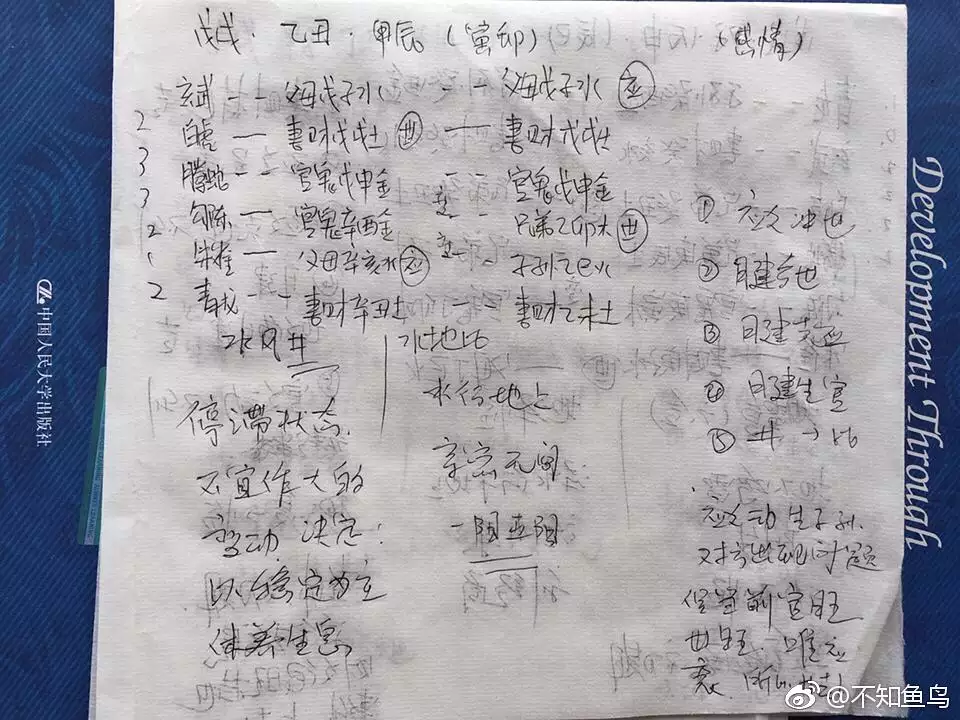 戊戌·乙丑·甲辰(寅卯) (感情)
玄武 -- 父母戊子水 -- 父母戊子水 应
2 白虎 — 妻财戊戌土 世 — 妻财戊戌土
3 腾蛇 -- 官鬼戊申金 -- 官鬼戊申金
3 勾陈 — 官鬼辛酉金 变 -- 兄弟乙卯木 世
2 朱雀 — 父母辛亥水 应 变 -- 子孙乙巳火
2 青龙 -- 妻财辛丑土 — 妻财乙未土
水风井
水地比
停滞状态
不宜作大的
变动 决定:
以稳定为主
休养生息
水行地上
亲密无间
一阳五阴
① 应爻冲世
② 月建合世
③ 日建克应
④ 日建生官
⑤ 井→比
应爻动生子孙
对方出现问题
但当前官旺
世旺 唯应
衰
中国人民大学出版社
Development Through
@不知鱼鸟